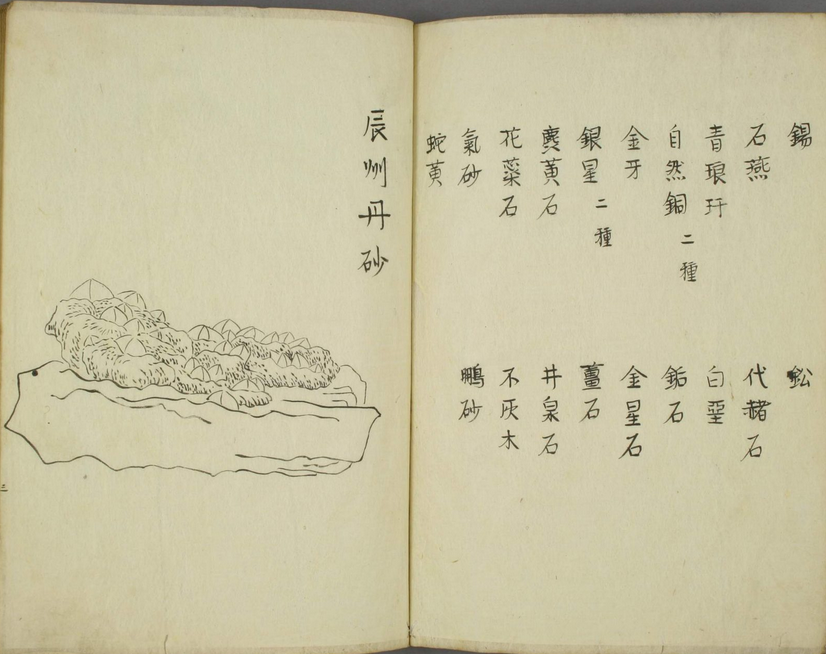 錫　鈆
石燕　代赭石
青琅玕　白堊
自然銅二種　石
金牙　金星石
銀星二種　薑石
黄石　井泉石
花蘂石　不灰木
氣砂　鵬砂
蛇黄
辰州丹砂
二